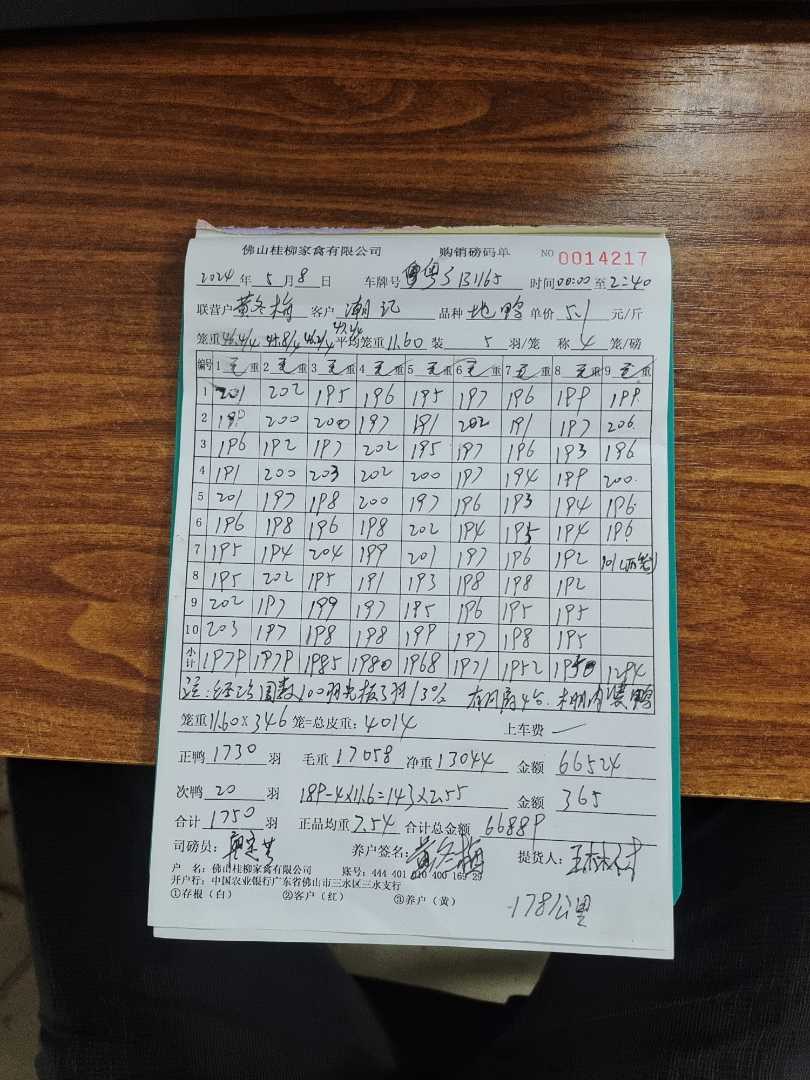 佛山桂柳家禽有限公司 购销磅码单 NO 0014217
2024年5月8日 车牌号 粤S131165 时间00:00至2:40
联营户 黄冬梅 客户 潮记 品种 地鸭 单价 5.1 元/斤
笼重 平均笼重 11.60 装 5 羽/笼 称 4 笼/磅
编号 1 毛重 2 毛重 3 毛重 4 毛重 5 毛重 6 毛重 7 毛重 8 毛重 9 毛重
1 201 202 195 196 195 197 196 199 199
2 199 200 200 197 191 202 191 197 206
3 196 192 197 202 195 197 196 193 196
4 191 200 203 202 200 197 194 199 200
5 201 197 198 200 197 196 193 194 196
6 196 198 196 198 202 194 195 194 196
7 195 194 204 199 201 197 196 192 101(两笼)
8 195 202 195 191 193 198 198 192
9 202 197 199 197 195 196 195 195
10 203 197 198 198 199 197 198 195
小计 1979 1979 1985 1980 1968 1971 1952 1950 1294
注:经 100羽 3羽 13%
笼重 11.60 X 346 笼=总皮重: 4014 上车费 —
正鸭 1730 羽 毛重 17058 净重 13044 金额 66524
次鸭 20 羽 189-4X11.6=143X2.55 金额 365
合计 1750 羽 正品均重 7.54 合计总金额 66889
司磅员: 养户签名: 黄冬梅 提货人:
户 名: 佛山桂柳家禽有限公司 账号: 444 401 010 400 169 29
开户行: 中国农业银行广东省佛山市三水区三水支行
①存根(白) ②客户(红) ③养户(黄)
178公里